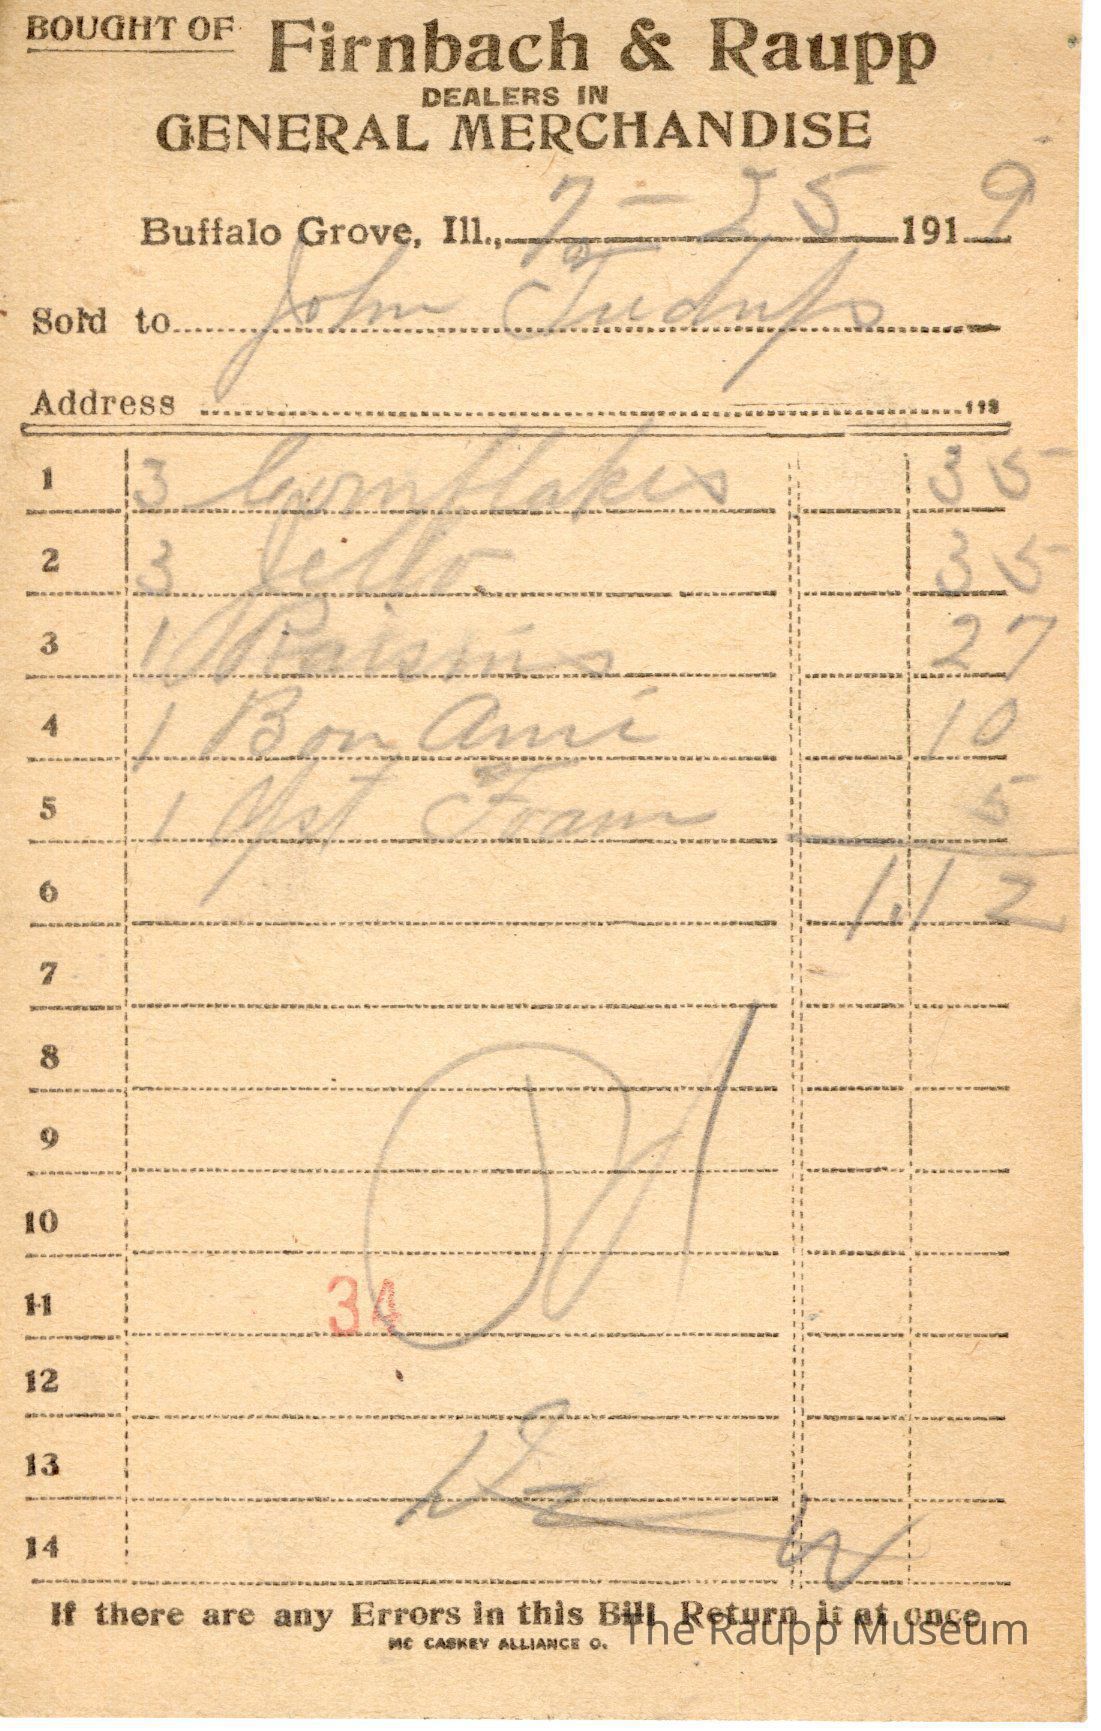 BOUGHT OF Firnbach & Raupp
DEALERS IN
GENERAL MERCHANDISE
Buffalo Grove, Ill., 7-25 1919
Sold to John
Address
1 3 Cornflakes 35
2 3 Jello 35
3 1 Raisins 27
4 1 Bon Ami 10
5 1 Yst Foam 5
6 1.12
7
8
9
10
11 34
12
13
14
If there are any Errors in this Bill Return it at once
MC CASKEY ALLIANCE O.
The Raupp Museum